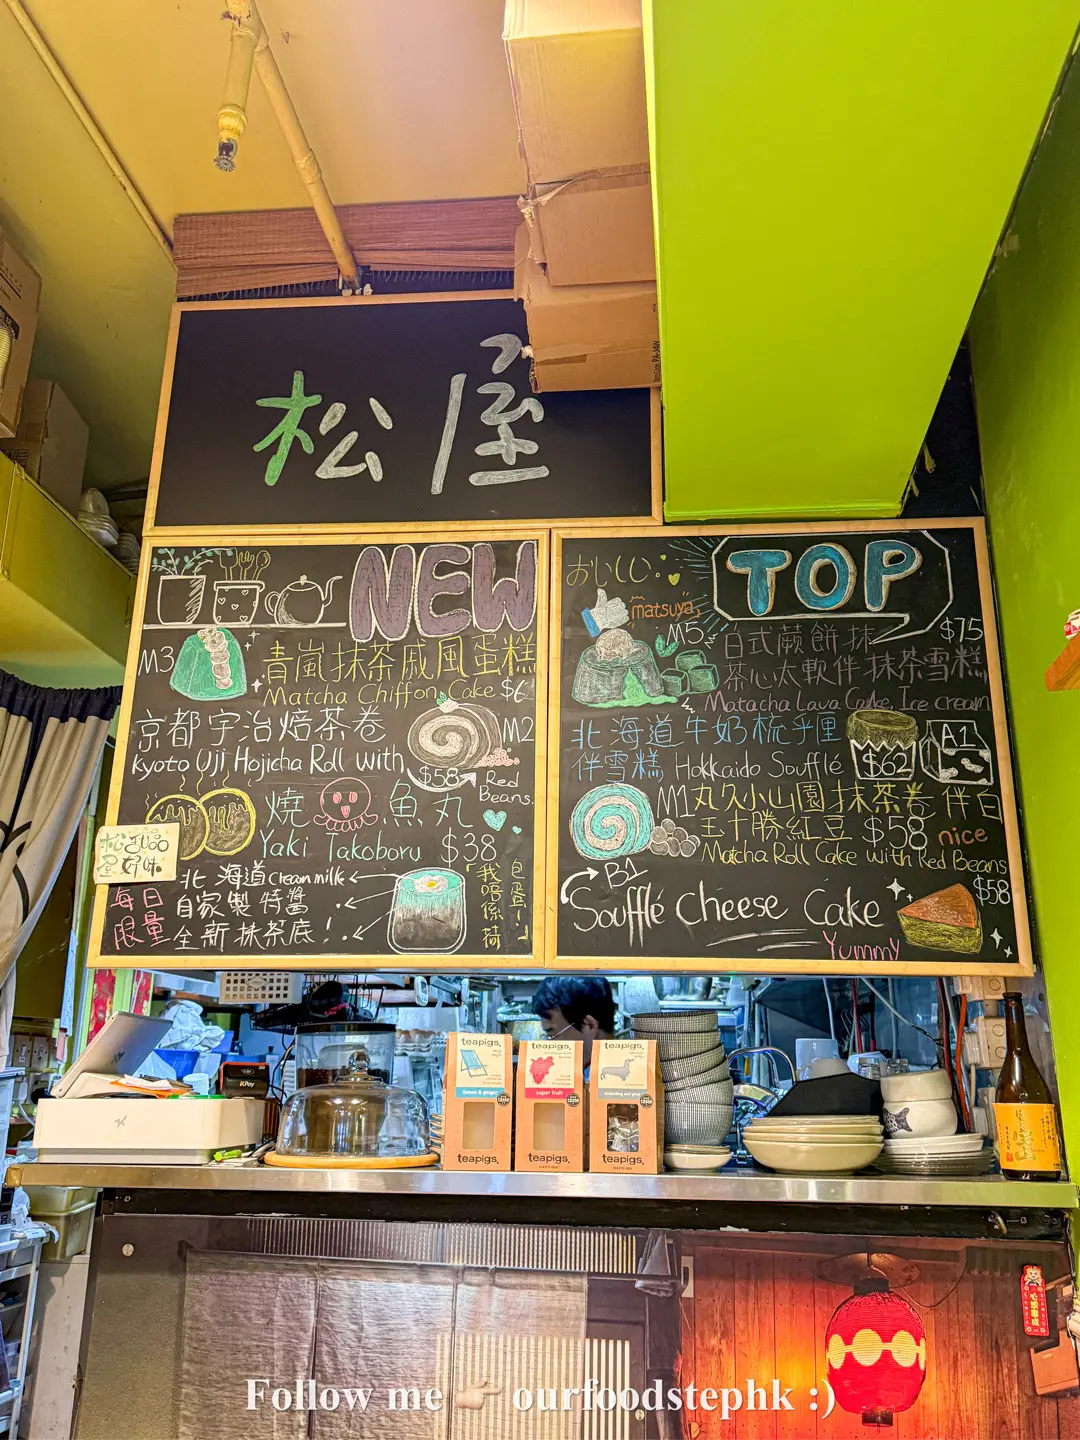 松屋
NEW
M3
青嵐抹茶戚風蛋糕
Matcha Chiffon Cake $6
京都宇治焙茶卷
M2
Kyoto Uji Hojicha Roll with
$58
Red
Beans.
燒 魚丸
Yaki Takoboru $38
好味
每日
限量
北海道cream milk
自家製特醬
全新抹茶底!
「我唔係荷
包蛋!」
おいしい。
TOP
matsuya
M5
日式蕨餅抹 $75
茶心太軟伴抹茶雪糕
Matacha Lava Cake, Ice cream
北海道牛奶梳乎厘
伴雪糕 Hokkaido Soufflé $62
A1
M1 丸久小山園抹茶卷伴白
玉十勝紅豆 $58 nice
Matcha Roll Cake with Red Beans
$58
B1
Soufflé Cheese Cake
Yummy
KPay
teapigs.
lemon & ginger
teapigs.
teapigs.
super fruit
teapigs.
teapigs.
teapigs.
Follow me 👉 ourfoodstephk :)